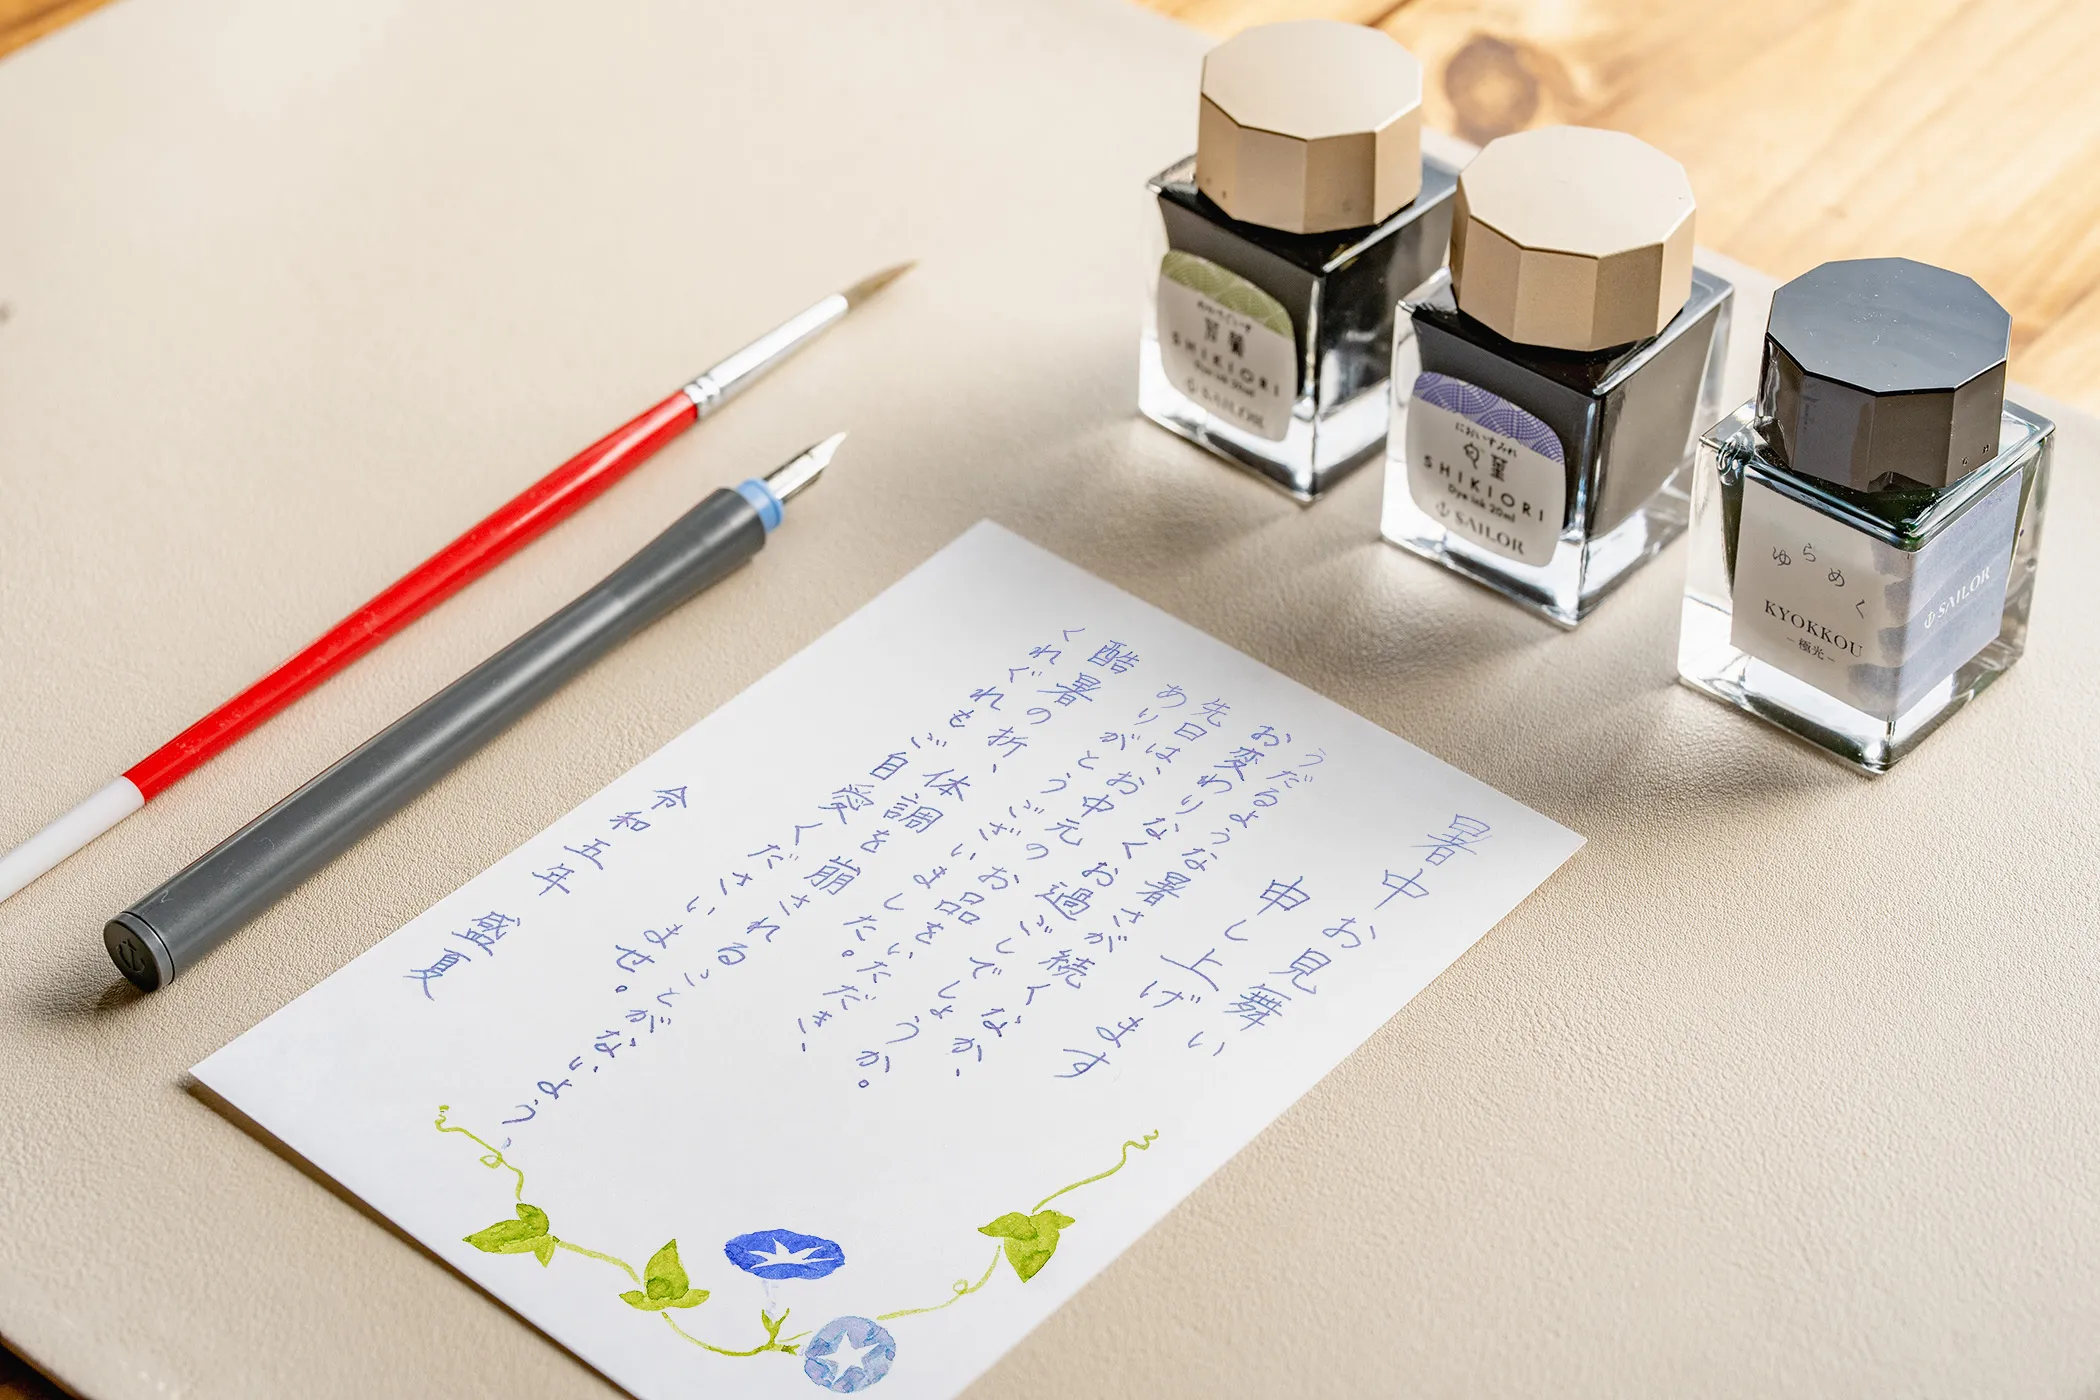 SHIKIORI
Dye ink 20ml
SAILOR
においすみれ
匂菫
SHIKIORI
Dye ink 20ml
SAILOR
ゆらめく
KYOKKOU
−極光−
SAILOR
暑中お見舞い
申し上げます
うだるような暑さが続くなか、
お変わりなくお過ごしでしょうか。
先日は、お中元のお品をいただき、
ありがとうございました。
酷暑の折、体調を崩されることがないよう、
くれぐれもご自愛くださいませ。
令和五年 盛夏